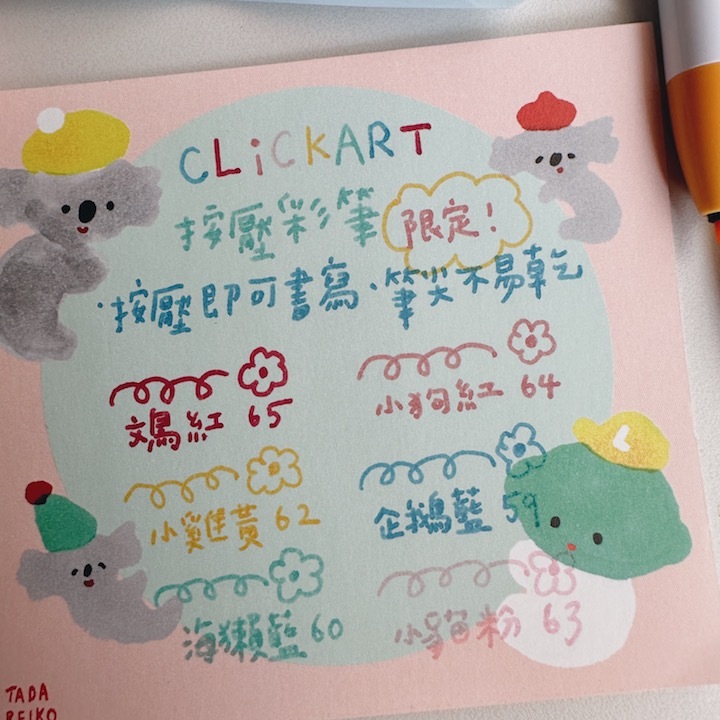 CLiCKART
按壓彩筆 限定!
·按壓即可書寫·筆尖不易乾
文鳥紅 65
小狗紅 64
小雞黃 62
企鵝藍 59
海獺藍 60
小貓粉 63
TADA
REIKO